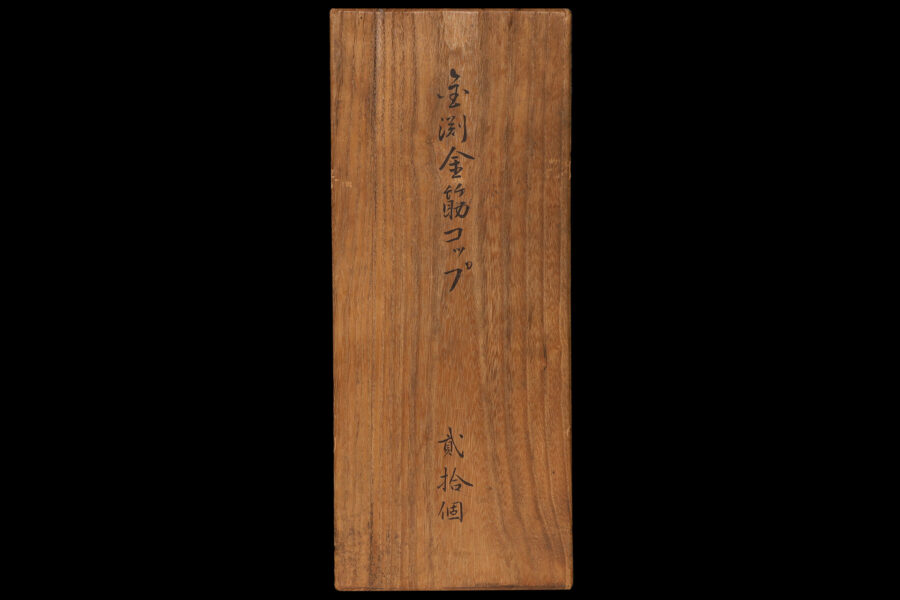 金渕金筋コップ
貳拾個